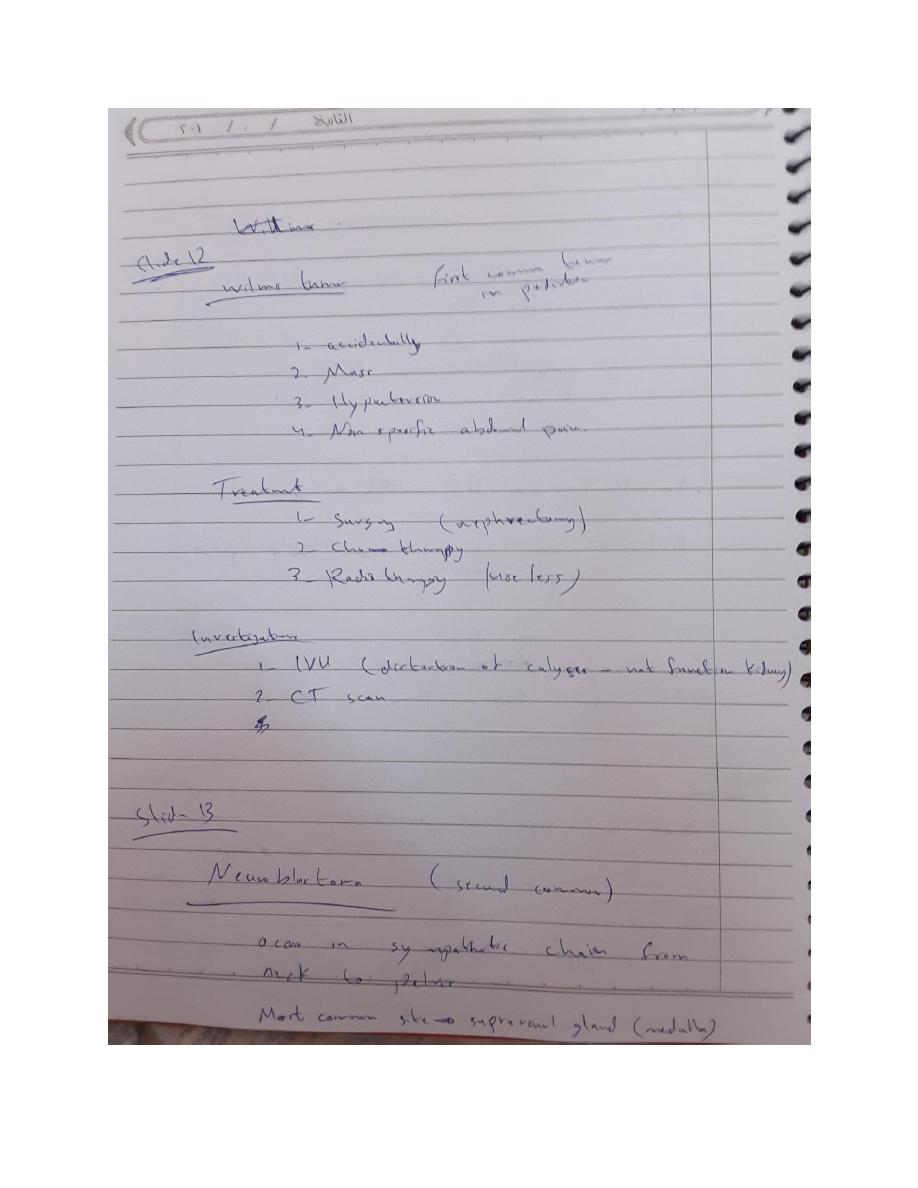 التاريخ / / ٢٠١
Slide 12
Wilms tumor
First common tumor
in pediatric
1- accidentally
2. Mass
3- Hypertension
4- Non specific abdominal pain.
Treatment
1- Surgery (nephrectomy)
2- Chemotherapy
3- Radiotherapy (use less)
Investigations
1- IVU (distortion of calyses - not function kidney)
2- CT scan
Slide 13
Neuroblastoma (second common)
occur in sympathetic chain from
neck to pelvis
Most common site → suprarenal gland (medulla)